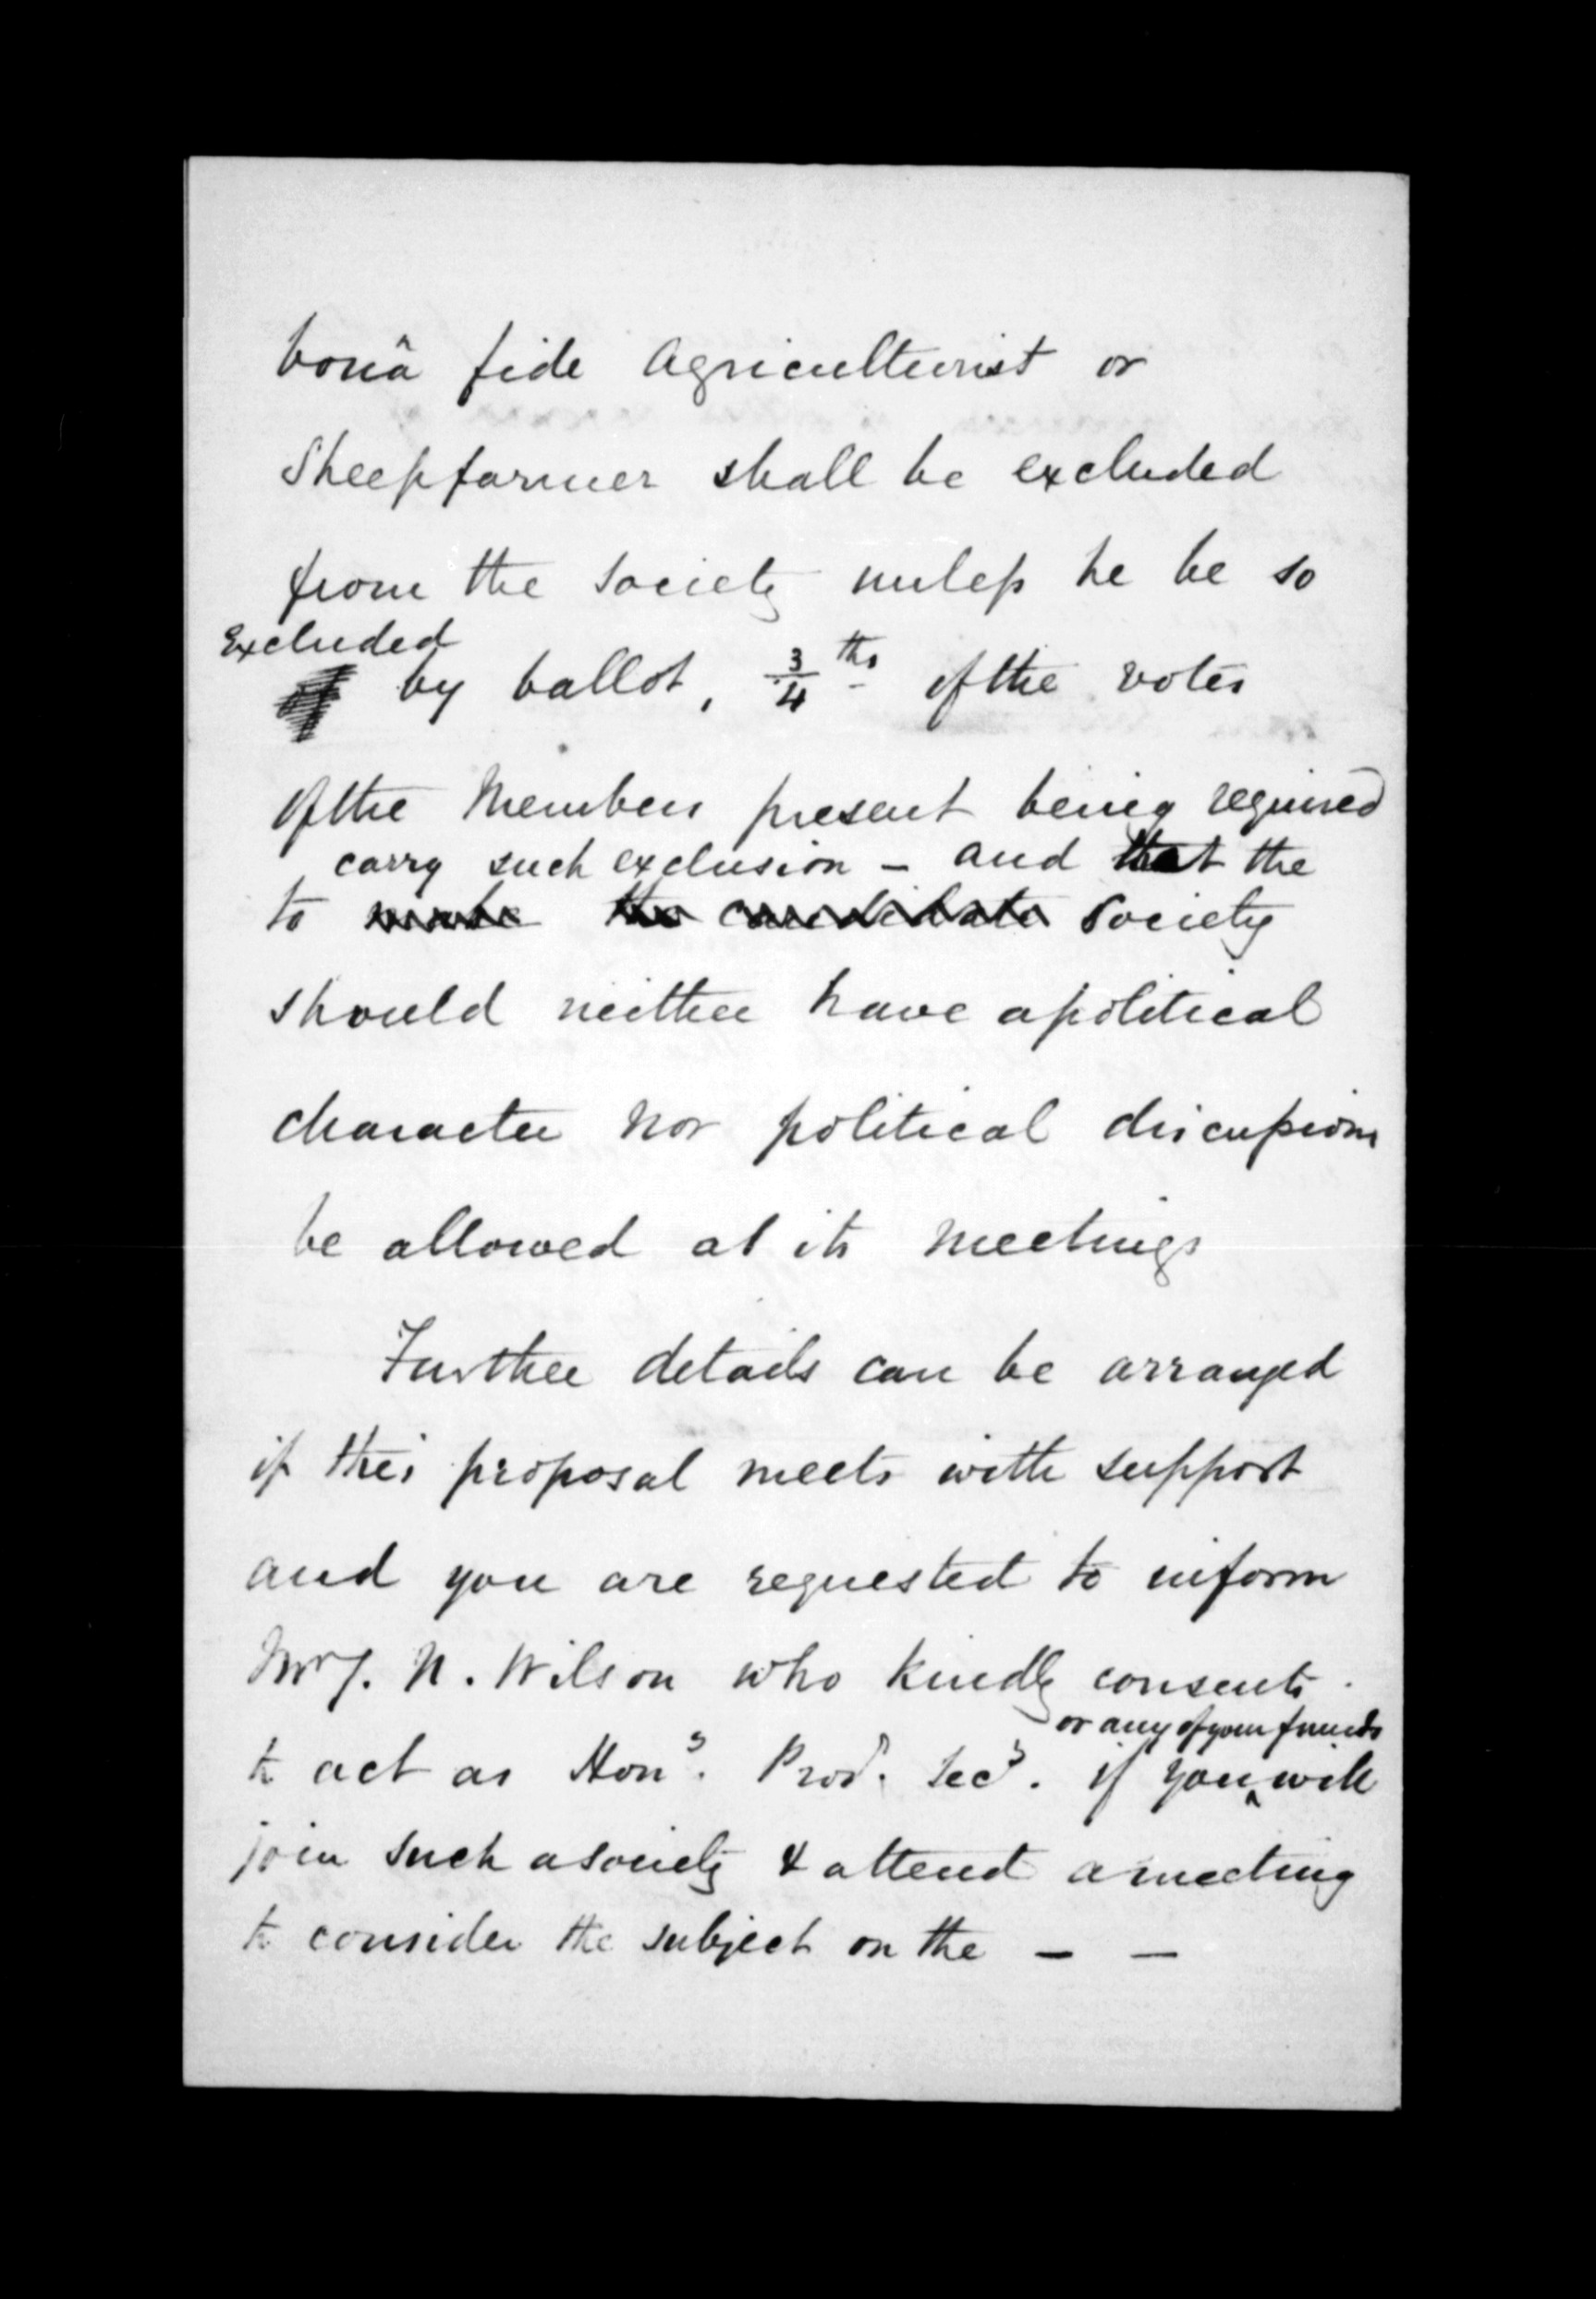 bonâ fide Agriculturist or
Sheepfarmer shall be excluded
from the Society unless he be so
Excluded
by ballot, 3/4 ths of the votes
of the Members present being required
carry such exclusion – and that the
to make the candidate Society
should neither have a political
character nor political discussions
be allowed at its meetings
Further details can be arranged
if this proposal meets with support
and you are requested to inform
Mr J. N. Wilson who kindly consents
or any of your friends
to act as Hony. Prov. Secy. if you ^ will
join such a society & attend a meeting
to consider the subject on the – –